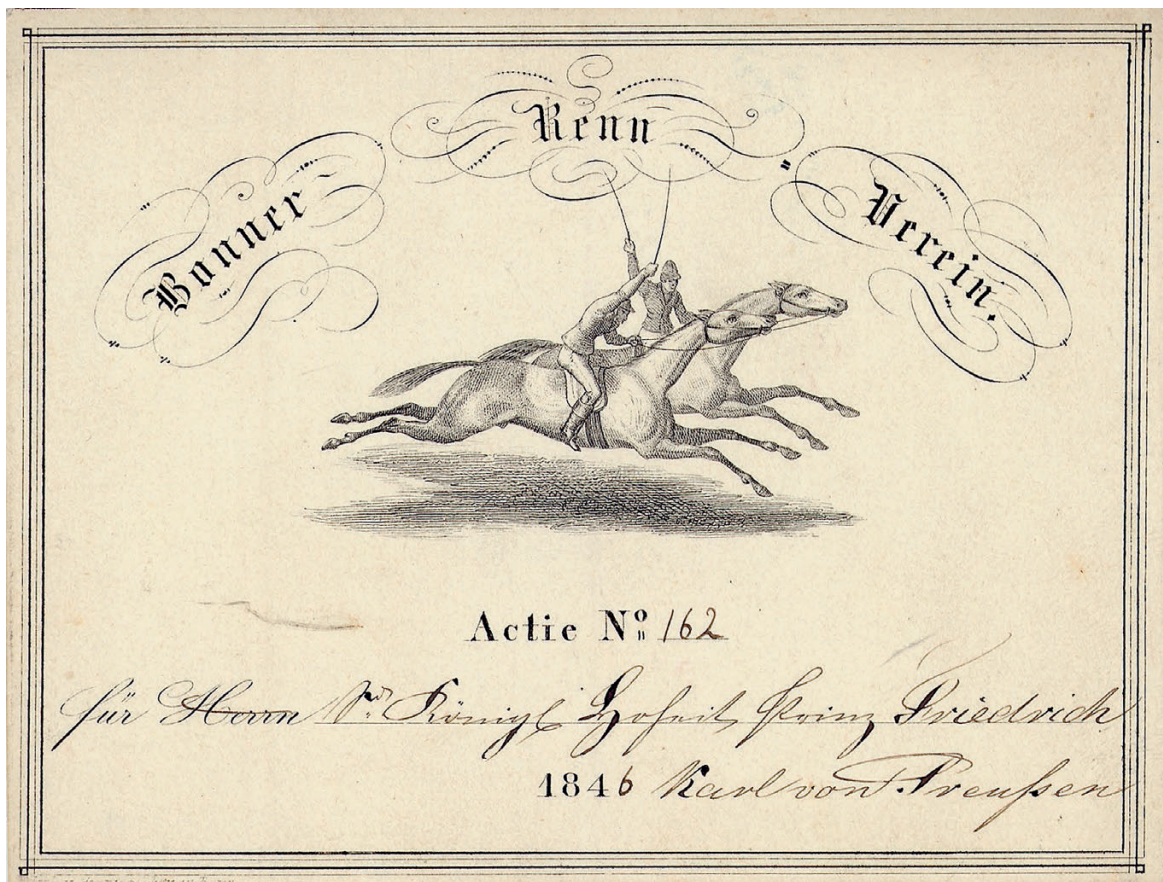 Bonner-Renn-Verein.
Actie No 162
für Herrn Sr. Königl. Hoheit, Prinz Friedrich
1846 Karl von Preußen